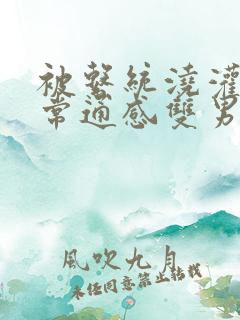 被繫統澆灌
常通感雙男
風吹九月
未經同意禁止轉載